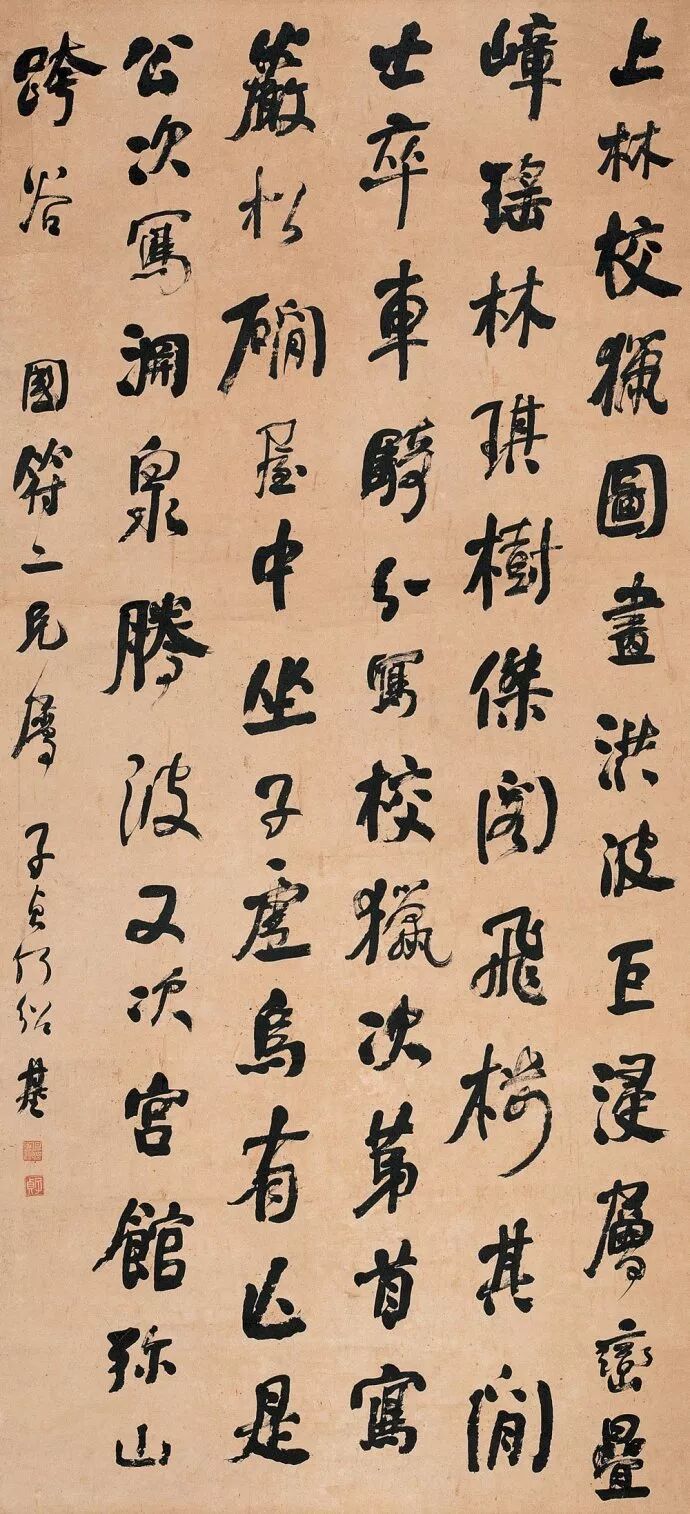 上林校獵圖畫洪波巨浸層巒疊
嶂瑤林琪樹傑閣飛樓其間
士卒車騎分寫校獵次第首寫
巖松磵屋中坐子虛烏有亡是
公次寫淵泉騰波又次宮館弥山
跨谷
國符二兄屬 子貞何紹基